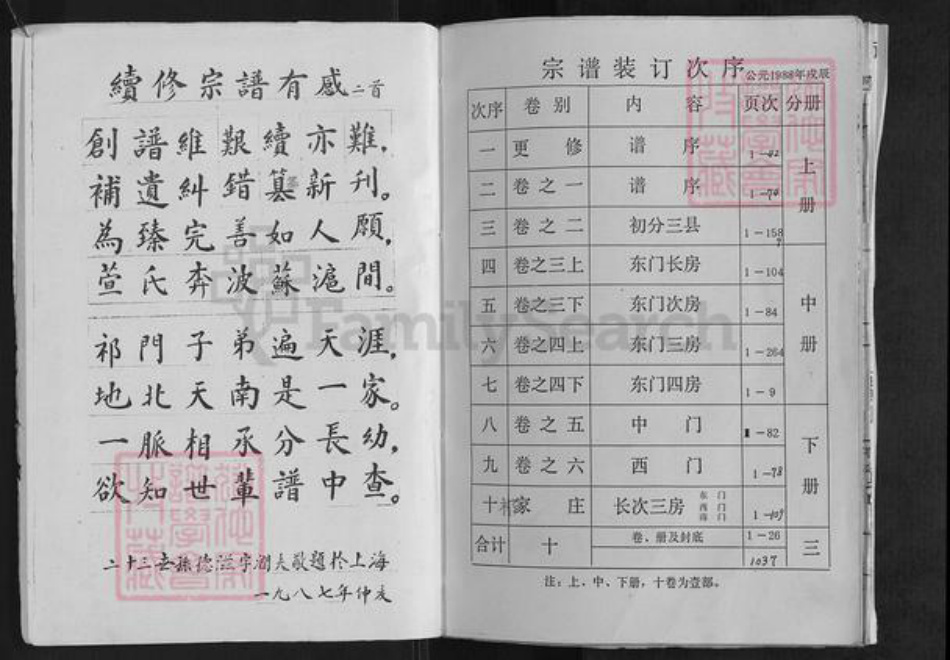 續修宗譜有感二首
創譜維艱續亦難,
補遺糾錯纂新刊。
為臻完善如人願,
萱氏奔波蘇滬間。
祁門子弟遍天涯,
地北天南是一家。
一脈相承分長幼,
欲知世輩譜中查。
二十三世孫德 敬題於上海
一九八七年仲亥
宗谱装订次序
公元1988年戊辰
次序 卷别 内容 页次 分册
一 更修 谱序 1-42 上册
二 卷之一 谱序 1-70
三 卷之二 初分三县 1-158
四 卷之三上 东门长房 1-104 中册
五 卷之三下 东门次房 1-84
六 卷之四上 东门三房 1-264
七 卷之四下 东门四房 1-9
八 卷之五 中门 1-82 下册
九 卷之六 西门 1-78
十 家庄 长次三房 东门 西门 南门 1-109
合计 十 卷、册及封底 1-26 三
1037
注:上、中、下册,十卷为壹部。
FamilySearch